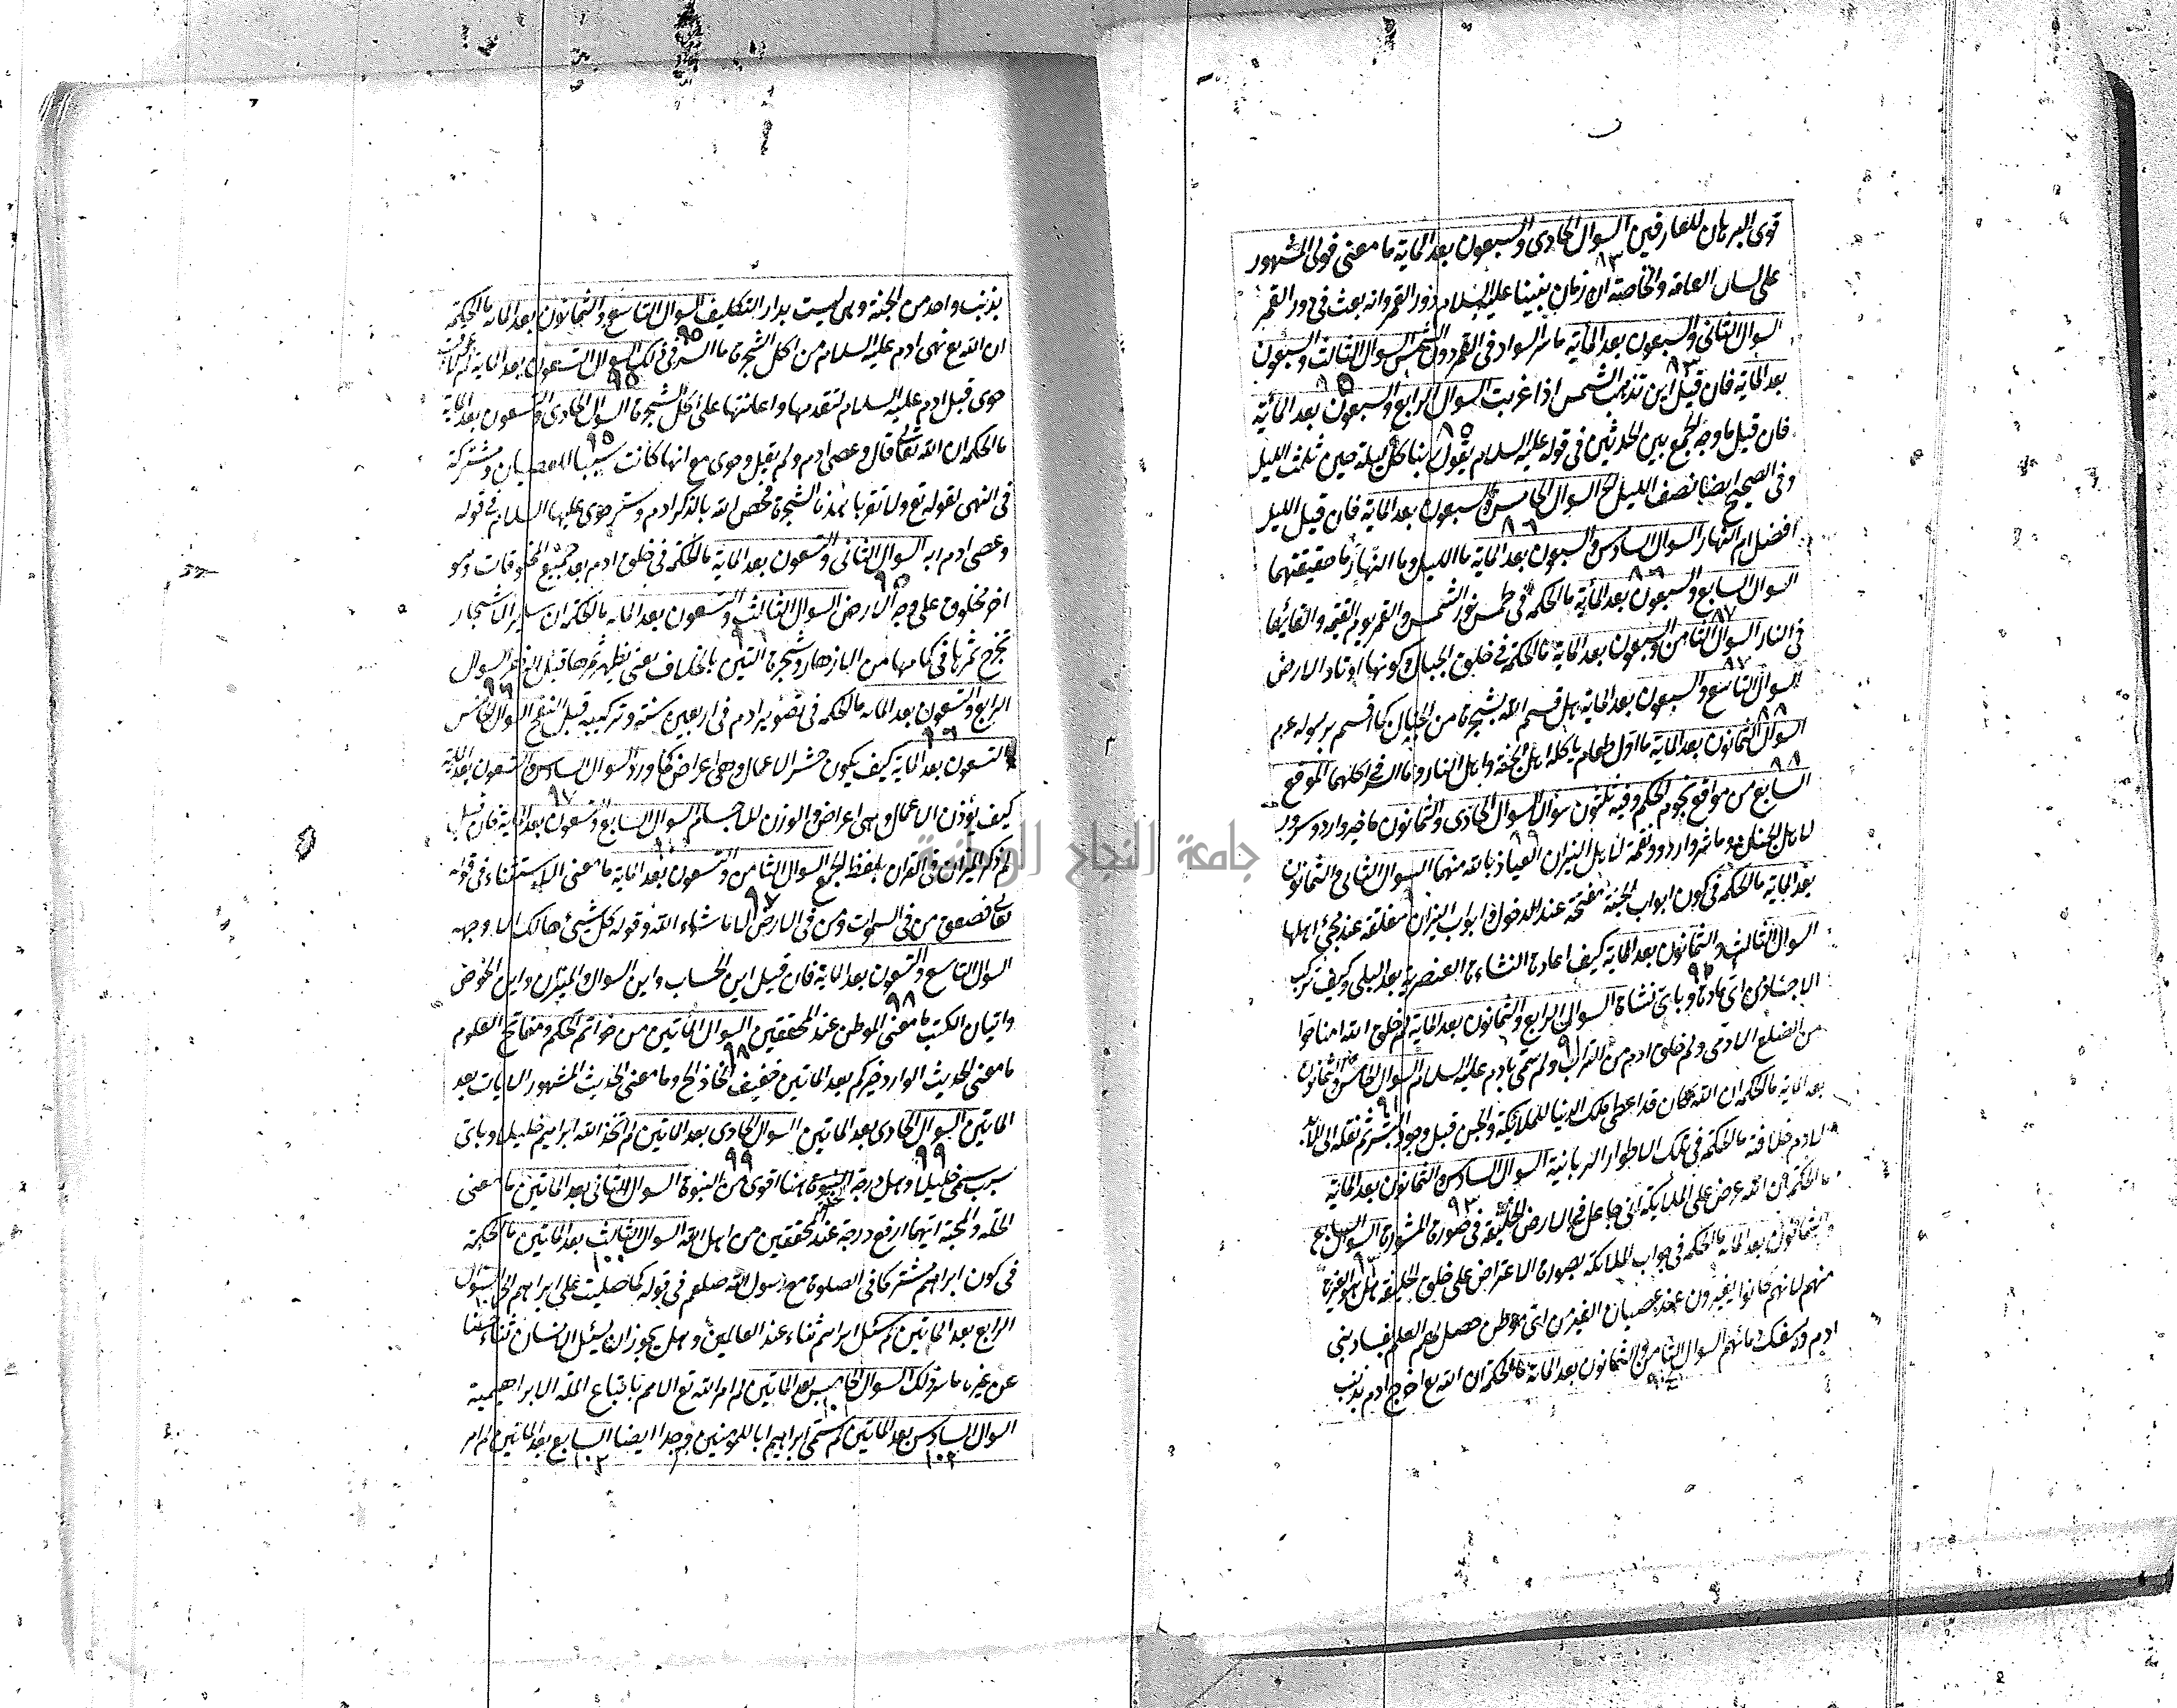 قوى البرهان للعارفين السوال الحادى والسبعون بعد الماية ما معنى قولى المشهور
على لسان العامة والخاصة ان زمان نبينا عليه السلام دور القمر وانه بعث فى دور القمر
السوال الثانى والسبعون بعد الماية ما سر السواد فى القمر دون الشمس السوال الثالث والسبعون
بعد الماية فان قيل اين تذهب الشمس اذا غربت السوال الرابع والسبعون بعد الماية
فان قيل ما وجه الجمع بين الحديثين فى قوله عليه السلام يقول ربنا كل ليلة حين ثلث الليل
وفى الصحيح ايضا نصف الليل الخ السوال الخامس والسبعون بعد الماية فان قيل الليل
افضل ام النهار السوال السادس والسبعون بعد الماية ما الليل وما النهار ما حقيقتهما
السوال السابع والسبعون بعد الماية ما الحكمة فى طمس نور الشمس والقمر يوم القيمة والقائهما
فى النار السوال الثامن والسبعون بعد الماية ما الحكمة فى خلق الجبال وكونها اوتاد الارض
السوال التاسع والسبعون بعد الماية هل قسم الله بشجرة من الجبال كما قسم برسوله عم
السوال الثمانون بعد الماية ما اول طعام ياكله اهل الجنة واهل النار وما السر فى اكلهما الموقع
السابع من مواقع نجوم الحكم وفيه ثلثون سوال السوال الحادى والثمانون ما خير وارد وسرور
لاهل الجنان وما شر وارد ونقمة لاهل النيران العياذ بالله منهما السوال الثانى والثمانون
بعد الماية ما الحكمة فى كون ابواب الجنة مفتحة عند الدخول وابواب النيران مغلقة عند مجئ اهلها
السوال الثالث والثمانون بعد الماية كيف اعادة النشاءة العنصرية بعد البلى وكيف تركب
الاجساد من اى مادة وباى نشاة السوال الرابع والثمانون بعد الماية لم خلق الله امنا حوا
من الضلع الادمى ولم خلق ادم من التراب ولم سمى بادم عليه السلام السوال الخامس والثمانون
بعد الماية ما الحكمة ان الله كان قد اعطى ملك الدنيا للملائكة والجن قبل وجود البشر ثم نقله الى
لادم خلافة ما الحكمة فى تلك الاطوار الربانية السوال السادس والثمانون بعد الماية
ما الحكمة ان الله عرض على الملايكة انى جاعل فى الارض الخليفة فى صورة المشورة السوال السابع
والثمانون بعد الماية ما الحكمة فى جواب الملائكة بصورة الاعتراض على خلق الخليفة هل هو الغيرة
منهم لانهم كانوا يغيرون عند عصيان الغير من اى موطن حصل لهم العلم بفساد بنى
ادم وسفك دمائهم السوال الثامن والثمانون بعد الماية ما الحكمة ان الله تع اخرج ادم بذنب
بذنب واحد من الجنة وهى ليست بدار التكليف السوال التاسع والثمانون بعد الماية ما الحكمة
ان الله تع نهى ادم عليه السلام من اكل الشجرة ما السر فى ذلك السوال التسعون بعد الماية لم
حوى قبل ادم عليه السلام لتقدمها واعانتها على اكل الشجرة السوال الحادى والتسعون بعد الماية
ما الحكمة ان الله تعالى قال وعصى ادم ولم يقل وحوى مع انها كانت سببا للعصيان ومشتركة
فى النهى لقوله تع ولا تقربا هذه الشجرة فخص الله بالذكر ادم وستر حوى عليها السلام فى قوله
وعصى ادم ربه السوال الثانى والتسعون بعد الماية ما الحكمة فى خلق ادم بعد جميع المخلوقات وهو
اخر مخلوق على وجه الارض السوال الثالث والتسعون بعد الماية ما الحكمة ان ساير الاشجار
تخرج ثمرها فى كمامها من الازهار وشجرة التين بالخلاف يعنى يظهر ثمرها قبل الزهر السوال
الرابع والتسعون بعد الماية ما الحكمة فى تصوير ادم فى اربعين سنة وتركيبه قبل النفخ السوال الخامس
والتسعون بعد الماية كيف يكون حشر الاعمال وهى اعراض كما ورد السوال السادس والتسعون بعد الماية
كيف توزن الاعمال وهى اعراض والوزن للاجسام السوال السابع والتسعون بعد الماية فان قيل
لم ذكر الميزان فى القران بلفظ الجمع السوال الثامن والتسعون بعد الماية ما معنى الاستثناء فى قوله
تعالى فصعق من فى السموات ومن فى الارض الا ما شاء الله وقوله كل شيئ هالك الا وجهه
السوال التاسع والتسعون بعد الماية فان قيل اين الحساب واين السوال والميزان واين الحوض
واتيان الكتب ما معنى الموطن عند المحققين السوال الماتين من خواتم الحكم ومفاتح العلوم
ما معنى الحديث الوارد خيركم بعد الماتين خفيف الحاذ الخ وما معنى الحديث المشهور الايات بعد
الماتين السوال الحادى بعد الماتين السوال الحادى بعد الماتين لم اتخذ الله ابراهيم خليلا وباى
سبب سمى خليلا وهل درجة النبوة هنا اقوى من النبوة السوال الثانى بعد الماتين ما معنى
الخلة والمحبة ايتهما ارفع درجة عند المحققين من اهل الله السوال الثالث بعد الماتين ما الحكمة
فى كون ابراهيم مشتركا فى الصلوة مع رسول الله صلعم فى قوله كما صليت على ابراهيم الخ السوال
الرابع بعد الماتين لم سئل ابراهيم ثناء عند العالمين وهل يجوز ان يسئل الانسان ثناء حسنا
عن غيره ما سر ذلك السوال الخامس بعد الماتين لم امر الله تع الامم باتباع الملة الابراهيمية
السوال السادس بعد الماتين لم سمى ابراهيم ابا للمؤمنين وجدا ايضا السابع بعد الماتين لم امر
جامعة النجاح الوطنية